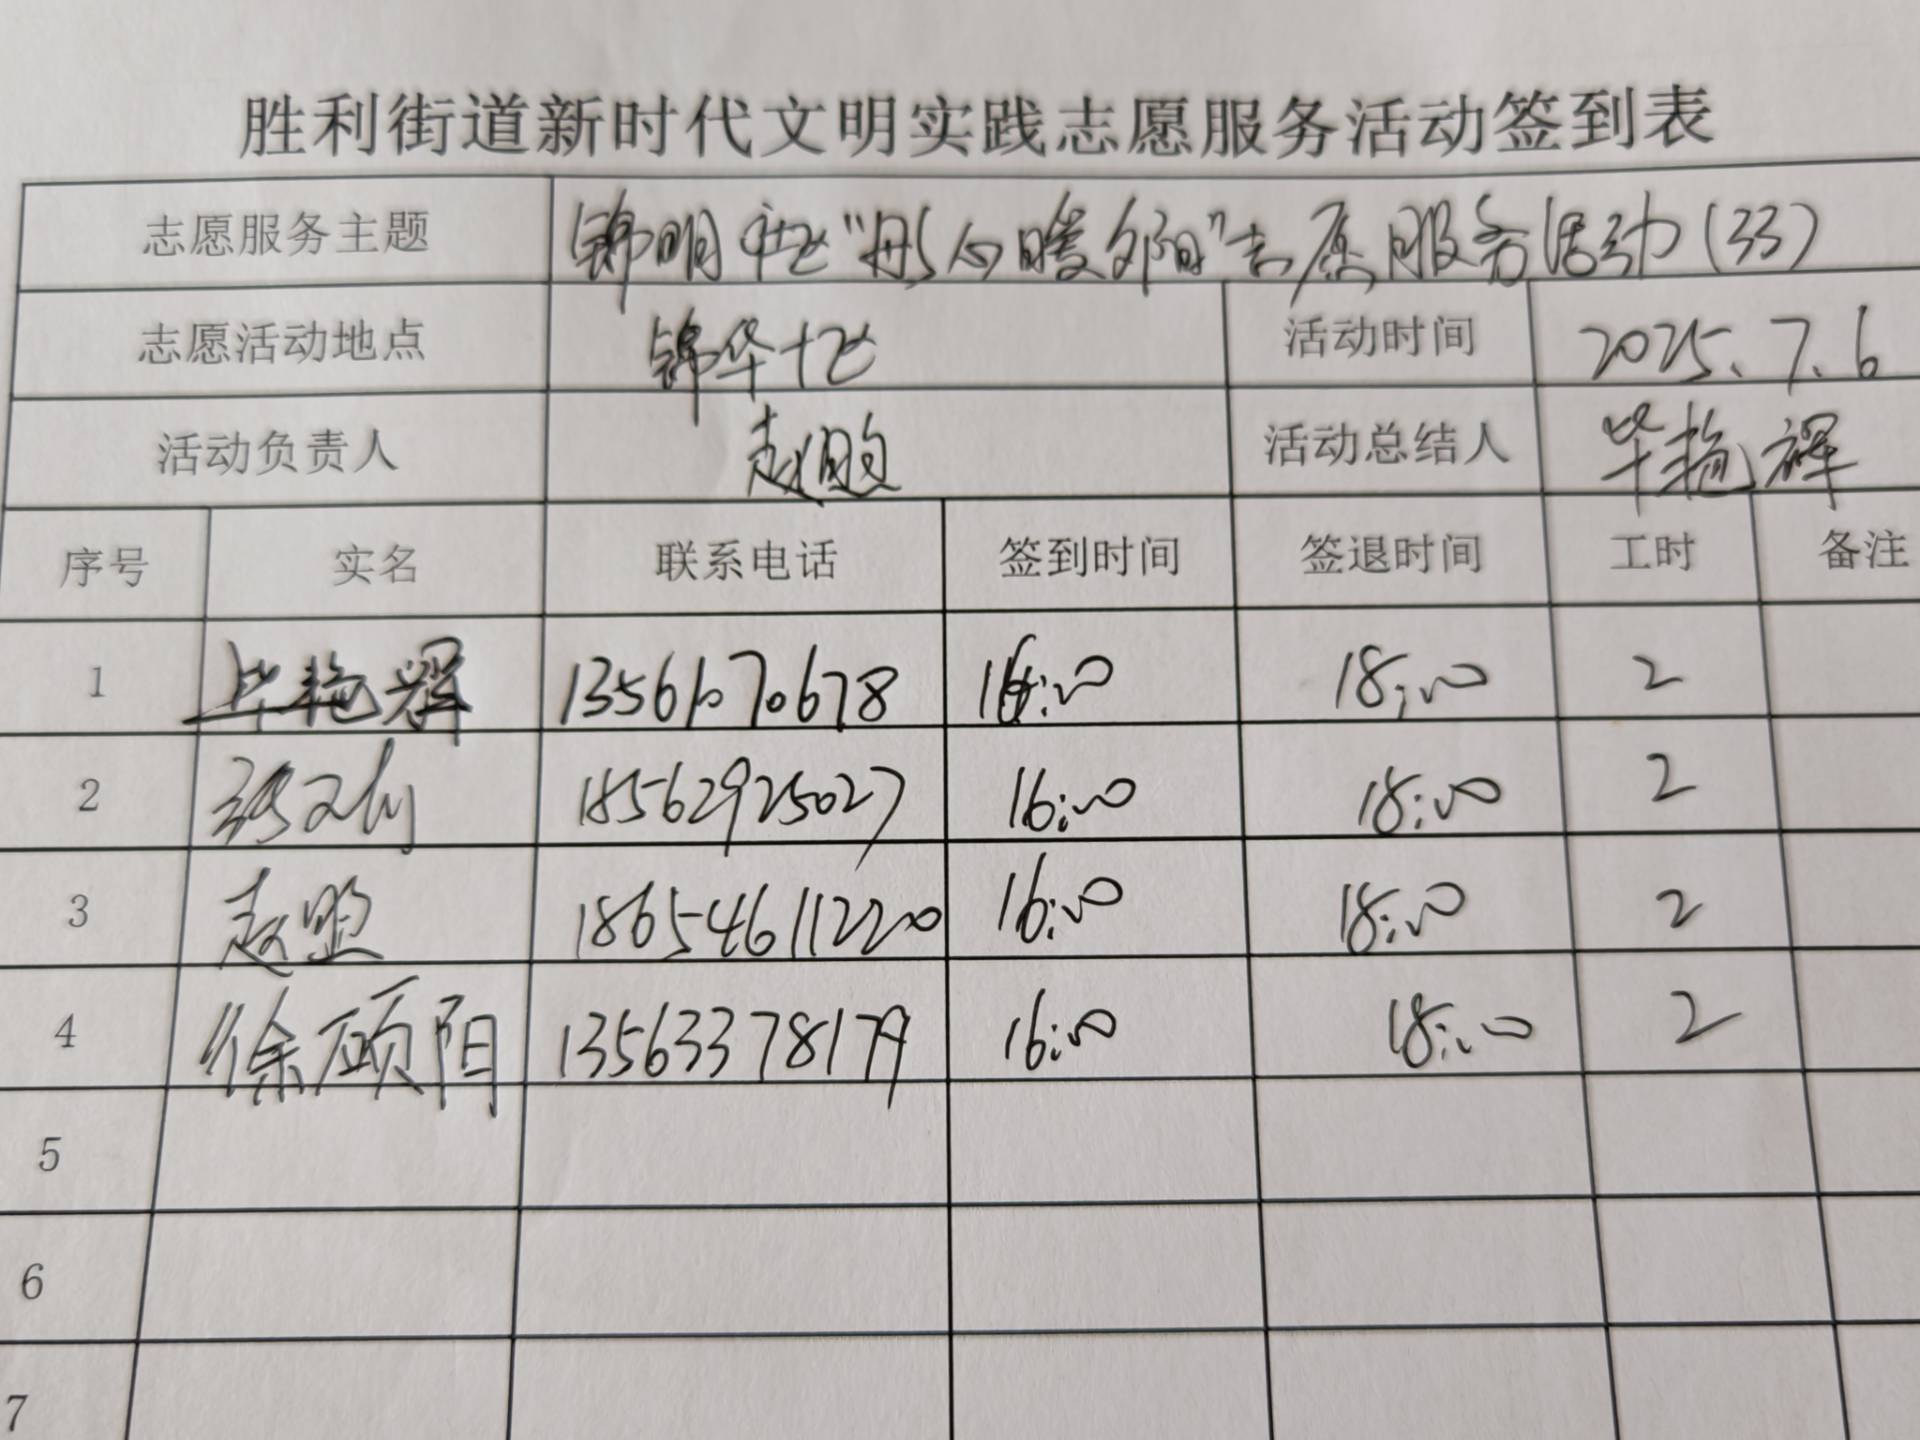 胜利街道新时代文明实践志愿服务活动签到表
志愿服务主题 锦明社区“彤心暖夕阳”志愿服务活动(33)
志愿活动地点 锦华十区 活动时间 2025.7.6
活动负责人 赵 活动总结人 毕艳辉
序号 实名 联系电话 签到时间 签退时间 工时 备注
1 毕艳辉 13561070678 16:00 18:00 2
2 18562925027 16:00 18:00 2
3 赵 18654611220 16:00 18:00 2
4 徐硕阳 13563378179 16:00 18:00 2
5
6
7